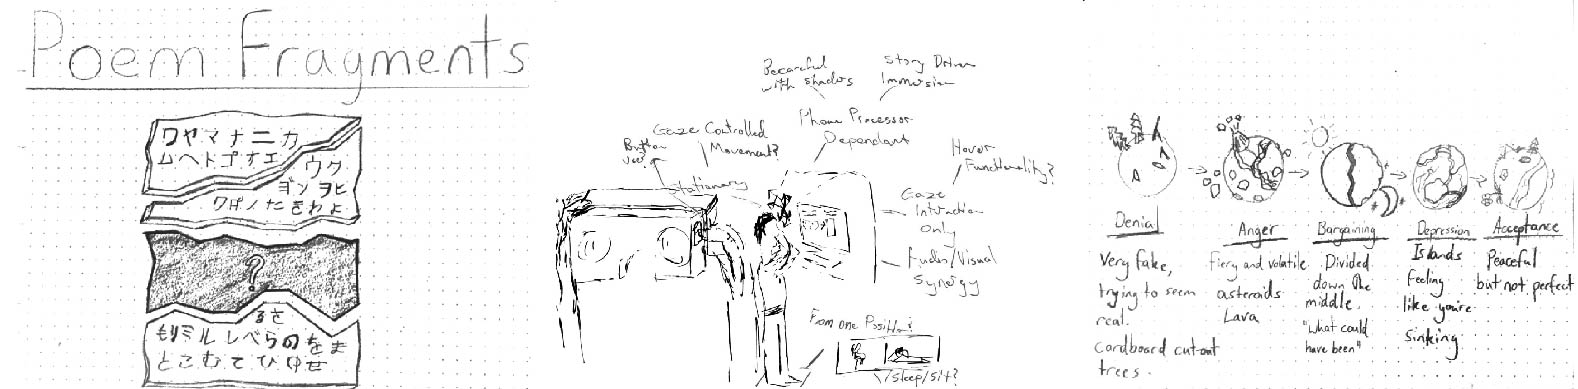 Poem Fragments
ワヤマナニカ
ムヘトゴオエ
ウク
ヨンヲヒ
たきわよ
?
るさ
ミルしべらのをま
とこむてひゆせ
Becareful
with shaders
Story Driven
Immersion
Phone Processor
Dependant
Gaze Controlled
Movement?
Button
Use?
Stationary
Hover
Functionality?
Gaze
Only
Visual
Synergy
From one Position?
/Sleep/Sit?
Denial
Very fake,
trying to seem
real.
Cardboard cutout
trees.
Anger
Fiery and volatile
asteroids
Lava
Bargaining
Divided
down the
middle.
"What could
have been"
Depression
Islands
Feeling
like you're
Sinking
Acceptance
Peaceful
but not perfect